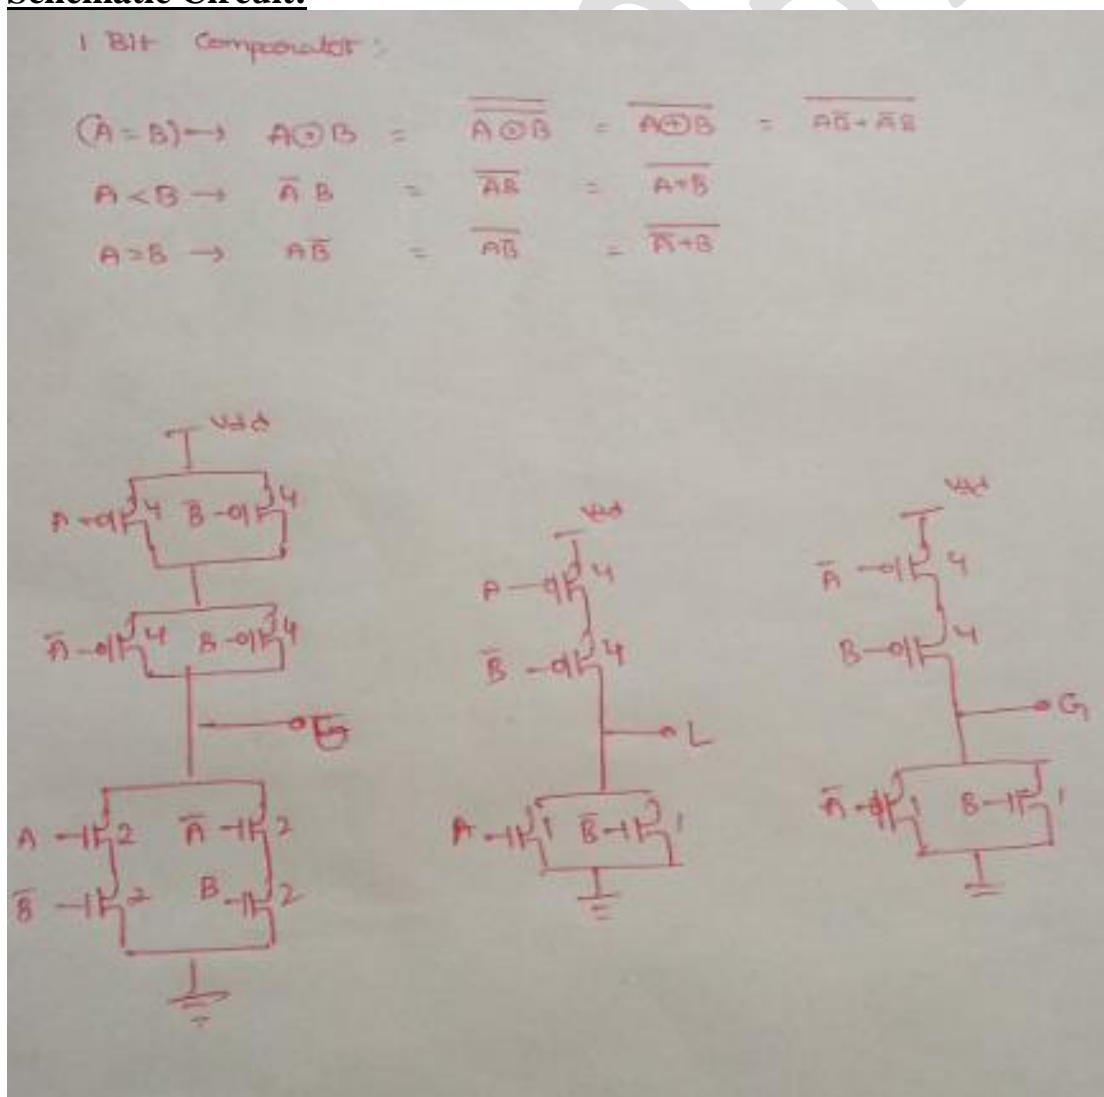 Schematic Circuit:
1 Bit Comparator :
(A = B) → A⊙B = \overline{\overline{A⊙B}} = \overline{A⊕B} = \overline{AB̅ + A̅B}
A < B → A̅ B = \overline{AB} = \overline{A+B̅}
A=B → AB̅ = \overline{AB̅} = \overline{A̅+B}
Vdd
A 4 B̅ 4
A̅ 4 B 4
E
A 2 A̅ 2
B̅ 2 B 2
Vdd
A 4
B̅ 4
L
A 1 B̅ 1
Vdd
A̅ 4
B 4
G
A̅ 1 B 1